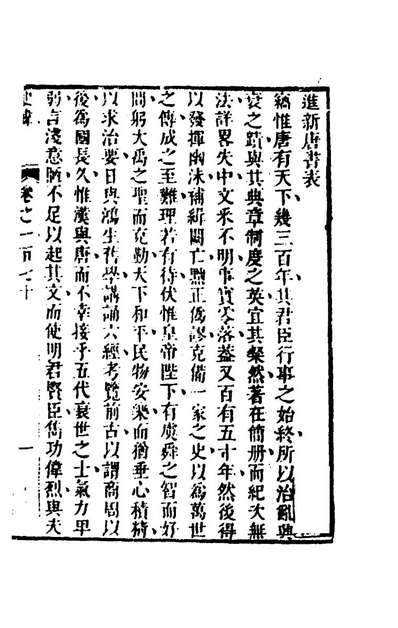 進新唐書表
竊惟唐有天下幾三百年其君臣行事之始終所以治亂興
衰之蹟與其典章制度之英宜其粲然著在簡册而紀次無
法詳畧失中文采不明事實零落蓋又百有五十年然後得
以發揮幽沬補緝闕亡黜正僞謬克備一家之史以爲萬世
之傳成之至難理若有待伏惟皇帝陛下有虞舜之智而好
問躬大禹之聖而克勤天下和平民物安樂而猶垂心積精
以求治要日與鴻生舊學講誦六經考覽前古以謂商周以
後爲國長久惟漢與唐而不幸接乎五代衰世之士氣力卑
弱言淺意陋不足以起其文而使明君賢臣雋功偉烈與夫
史緯 卷之一百七十 一